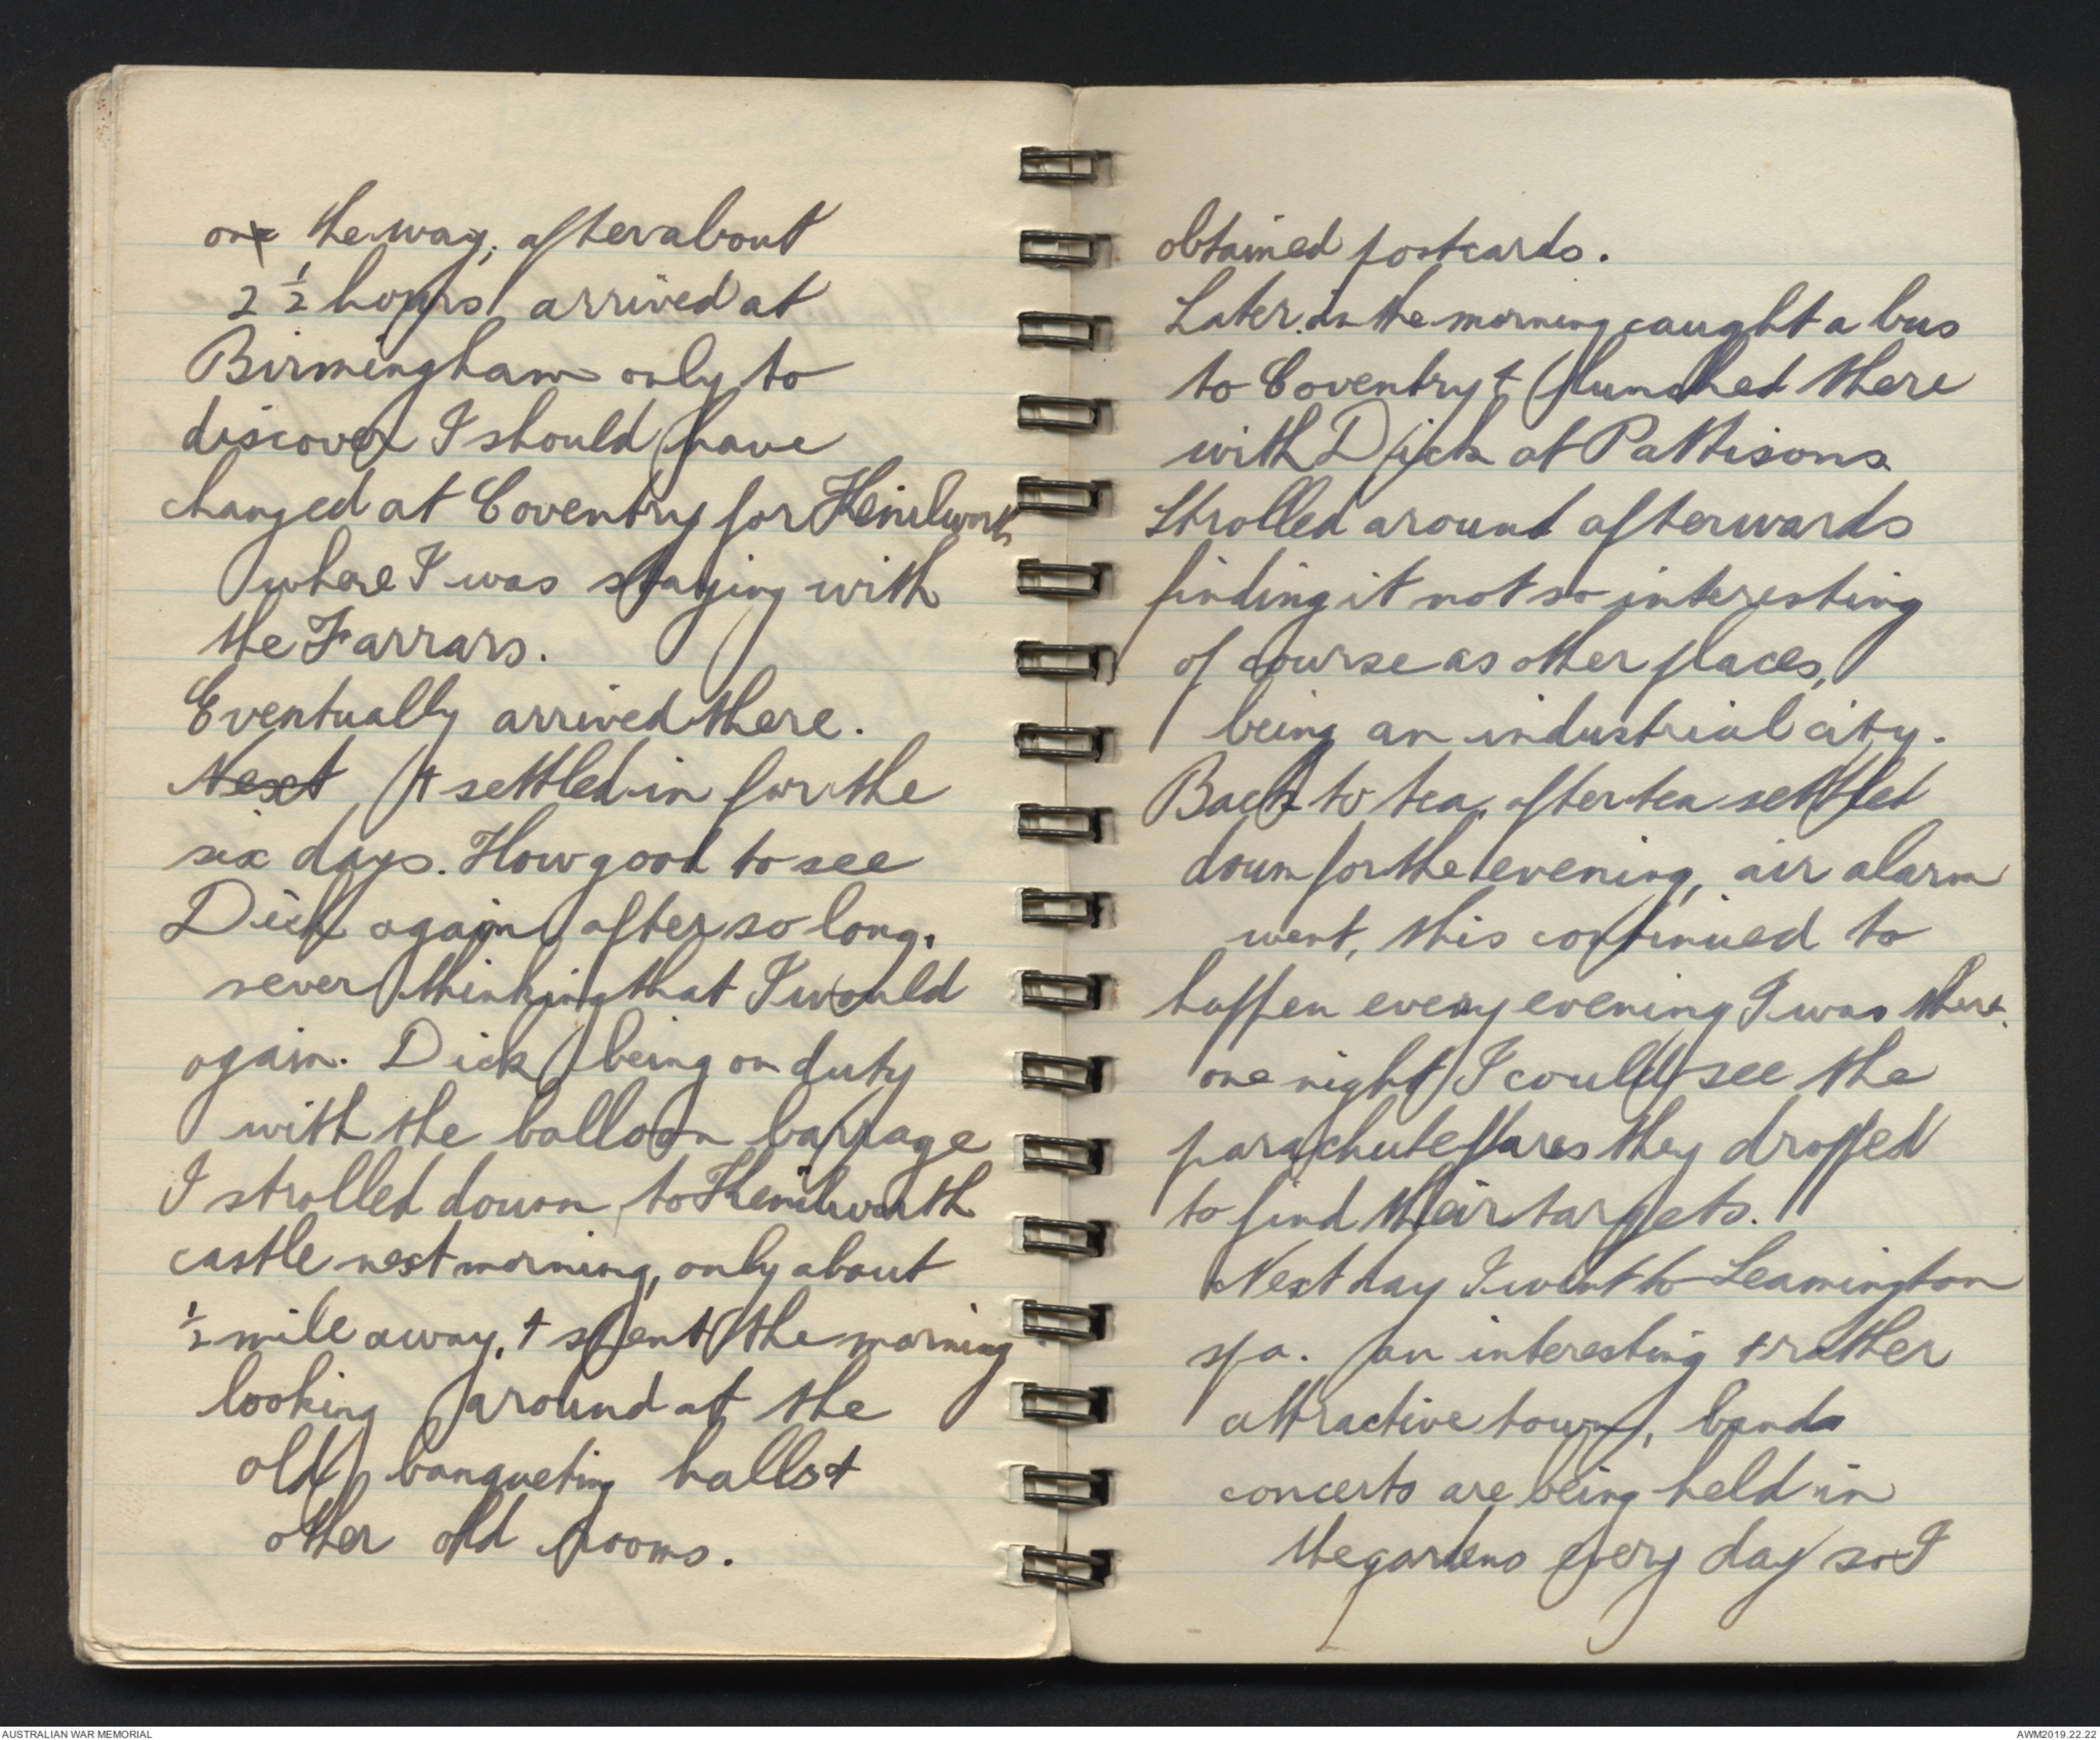 on the way, after about
2 ½ hours arrived at
Birmingham only to
discover I should have
changed at Coventry for Kenilworth
where I was staying with
the Farrars.
Eventually arrived there.
Next + settled in for the
six days. How good to see
Dick again after so long.
never thinking that I would
again. Dick being on duty
with the balloon barrage
I strolled down to Kenilworth
castle next morning, only about
½ mile away, + spent the morning
looking around at the
old banqueting halls +
other old rooms.
obtained postcards.
Later in the morning caught a bus
to Coventry + lunched there
with Dick at Pattisons
Strolled around afterwards
finding it not so interesting
of course as other places,
being an industrial city.
Back to tea, after tea settled
down for the evening, air alarm
went, this continued to
happen every evening I was there.
one night I could see the
parachute flares they dropped
to find their targets.
Next day I went to Leamington
spa. an interesting + rather
attractive town, bands
concerts are being held in
the gardens every day so I
AUSTRALIAN WAR MEMORIAL
AWM2019.22.22